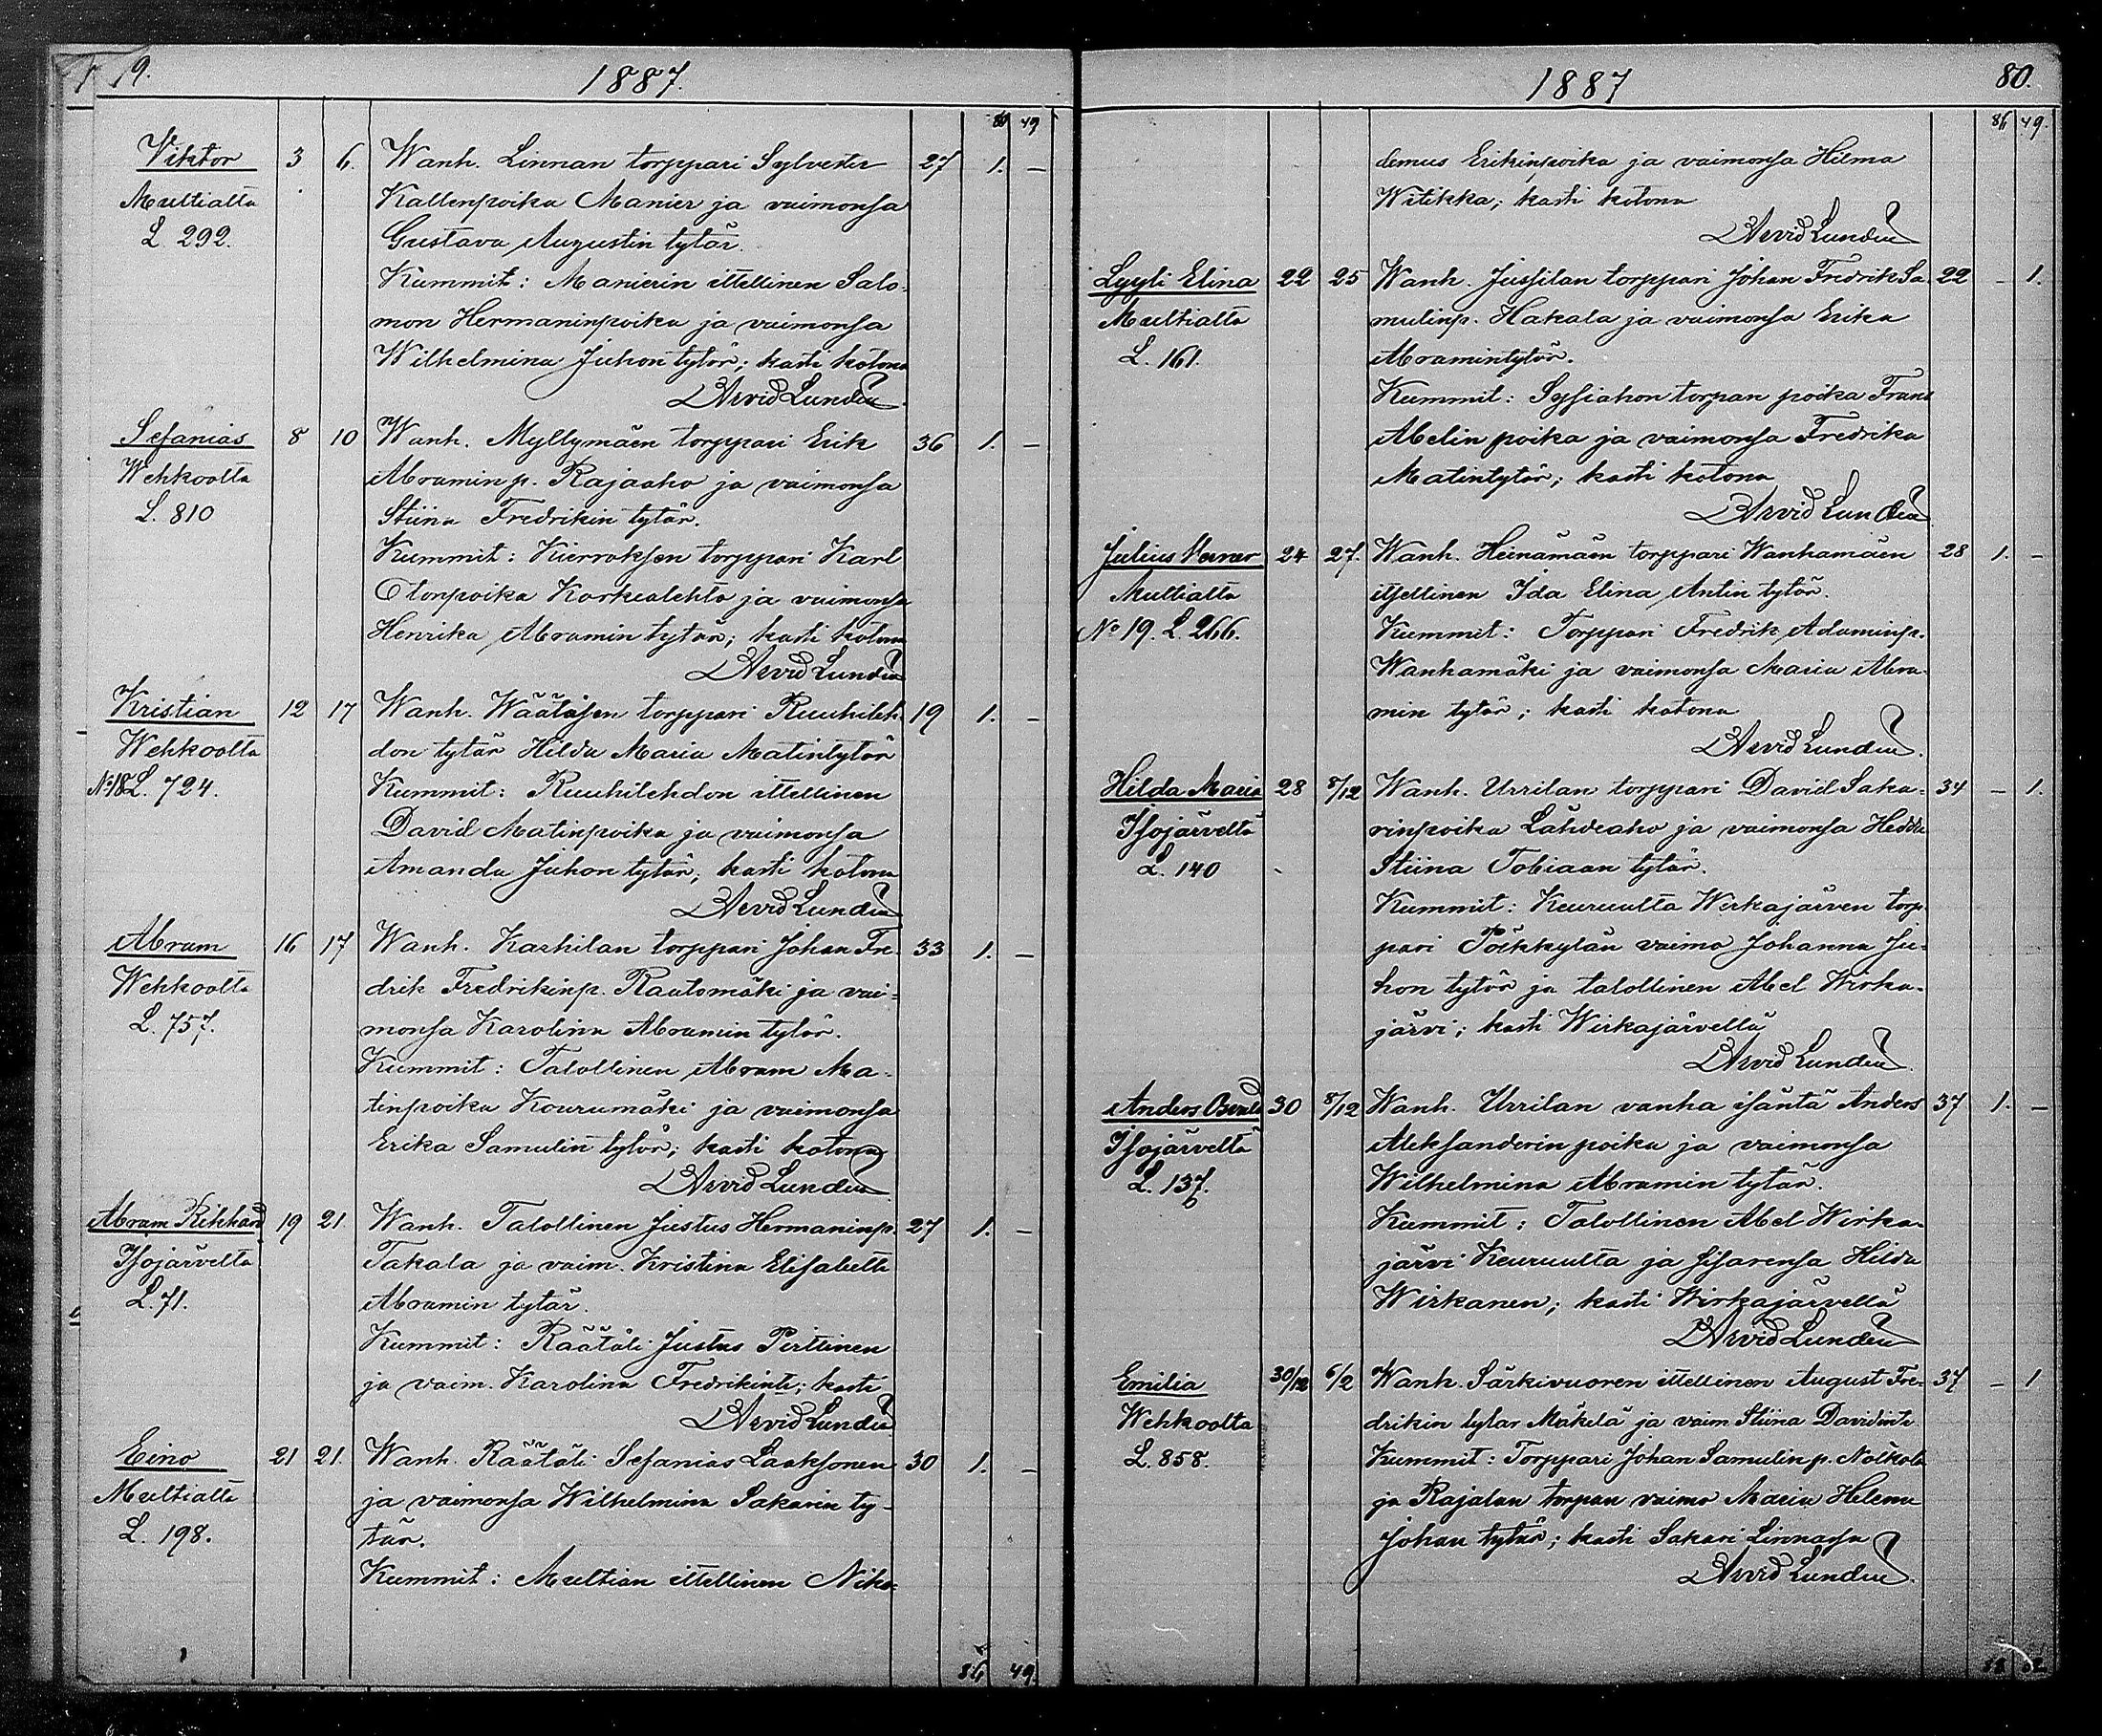 79.
1887.
80 49
Viktor 3 6. Wanh. Linnan torppari Sylvester 27 1. –
Multialta Kallenpoika Manier ja vaimonsa
L 292. Gustava Augustin tytär.
Kummit: Manierin ittellinen Salo-
mon Hermaninpoika ja vaimonsa
Wilhelmina Juhon tytär; kasti kotona
Arvid Lundén
Sefanias 8 10 Wanh. Myllymäen torppari Erik 36 1. –
Wehkoolta Abraminp. Rajaaho ja vaimonsa
L. 810 Stiina Fredrikin tytär.
Kummit: Kierroksen torppari Karl
Otonpoika Korkealehto ja vaimonsa
Henrika Abramin tytär; kasti kotona
Arvid Lundén
Kristian 12 17 Wanh. Wäätäsen torppari Ruuhileh- 19 1. –
Wehkoolta don tytär Hilda Maria Matintytär
No 18 L. 724. Kummit: Ruuhilehdon ittellinen
David Matinpoika ja vaimonsa
Amanda Juhon tytär; kasti kotona
Arvid Lundén
Abram 16 17 Wanh. Karhilan torppari Johan Fre- 33 1. –
Wehkoolta drik Fredrikinp. Rautomäki ja vai-
L. 757. monsa Karolina Abramin tytär.
Kummit: Talollinen Abram Ma-
tinpoika Kourumäki ja vaimonsa
Erika Samulin tytär; kasti kotona
Arvid Lundén
Abram Rikhard 19 21 Wanh. Talollinen Justus Hermaninp. 27 1. –
Isojärveltä Takala ja vaim. Kristina Elisabetta
L. 71. Abramin tytär.
Kummit: Räätäli Justus Pirttinen
ja vaim. Karolina Fredrikint.; kasti
Arvid Lundén
Eino 21 21. Wanh. Räätäli Sefanias Laaksonen 30 1. –
Multialta ja vaimonsa Wilhelmina Sakarin ty-
L. 198. tär.
Kummit: Multian ittellinen Niko-
86 49.
1887 80.
86 49.
demus Erikinpoika ja vaimonsa Hilma
Witikka; kasti kotona
Arvid Lundén
Lyyli Elina 22 25 Wanh. Jussilan torppari Johan Fredrik Sa- 22 – 1.
Multialta mulinp. Hakala ja vaimonsa Erika
L. 161. Abramintytär.
Kummit: Sysiahon torpan poika Frans
Abelin poika ja vaimonsa Fredrika
Matintytär; kasti kotona
Arvid Lundén
Julius Verner 24 27. Wanh. Heinämäen torppari Wanhamäen 28 1. –
Multialta itsellinen Ida Elina Antin tytär.
No 19. L. 266. Kummit: Torppari Fredrik Adaminp.
Wanhamäki ja vaimonsa Maria Abra-
min tytär; kasti kotona
Arvid Lundén.
Hilda Maria 28 8/12 Wanh. Urrilan torppari David Saka- 34 – 1.
Isojärveltä rinpoika Lähdeaho ja vaimonsa Hedda
L. 140 Stiina Tobiaan tytär.
Kummit: Keuruulta Wirkajärven torp-
pari Pöikkylän vaimo Johanna Ju-
hon tytär ja talollinen Abel Wirka-
järvi; kasti Wirkajärvellä
Arvid Lundén.
Anders Osvald 30 8/12 Wanh. Urrilan vanha isäntä Anders 37 1. –
Isojärveltä Aleksanderin poika ja vaimonsa
L. 137. Wilhelmina Abramin tytär.
Kummit: Talollinen Abel Wirka-
järvi Keuruulta ja sisarensa Hilda
Wirkanen; kasti Wirkajärvellä
Arvid Lundén
Emilia 30/12 6/2 Wanh. Särkivuoren ittellinen August Fre- 37 – 1
Wehkoolta drikin tytar Mäkelä ja vaim. Stiina Davidint.
L. 858. Kummit: Torppari Johan Samulin p. Nölkölä
ja Rajalan torpan vaimo Maria Helena
Johan tytär; kasti Sakari Linnassa
Arvid Lundén.